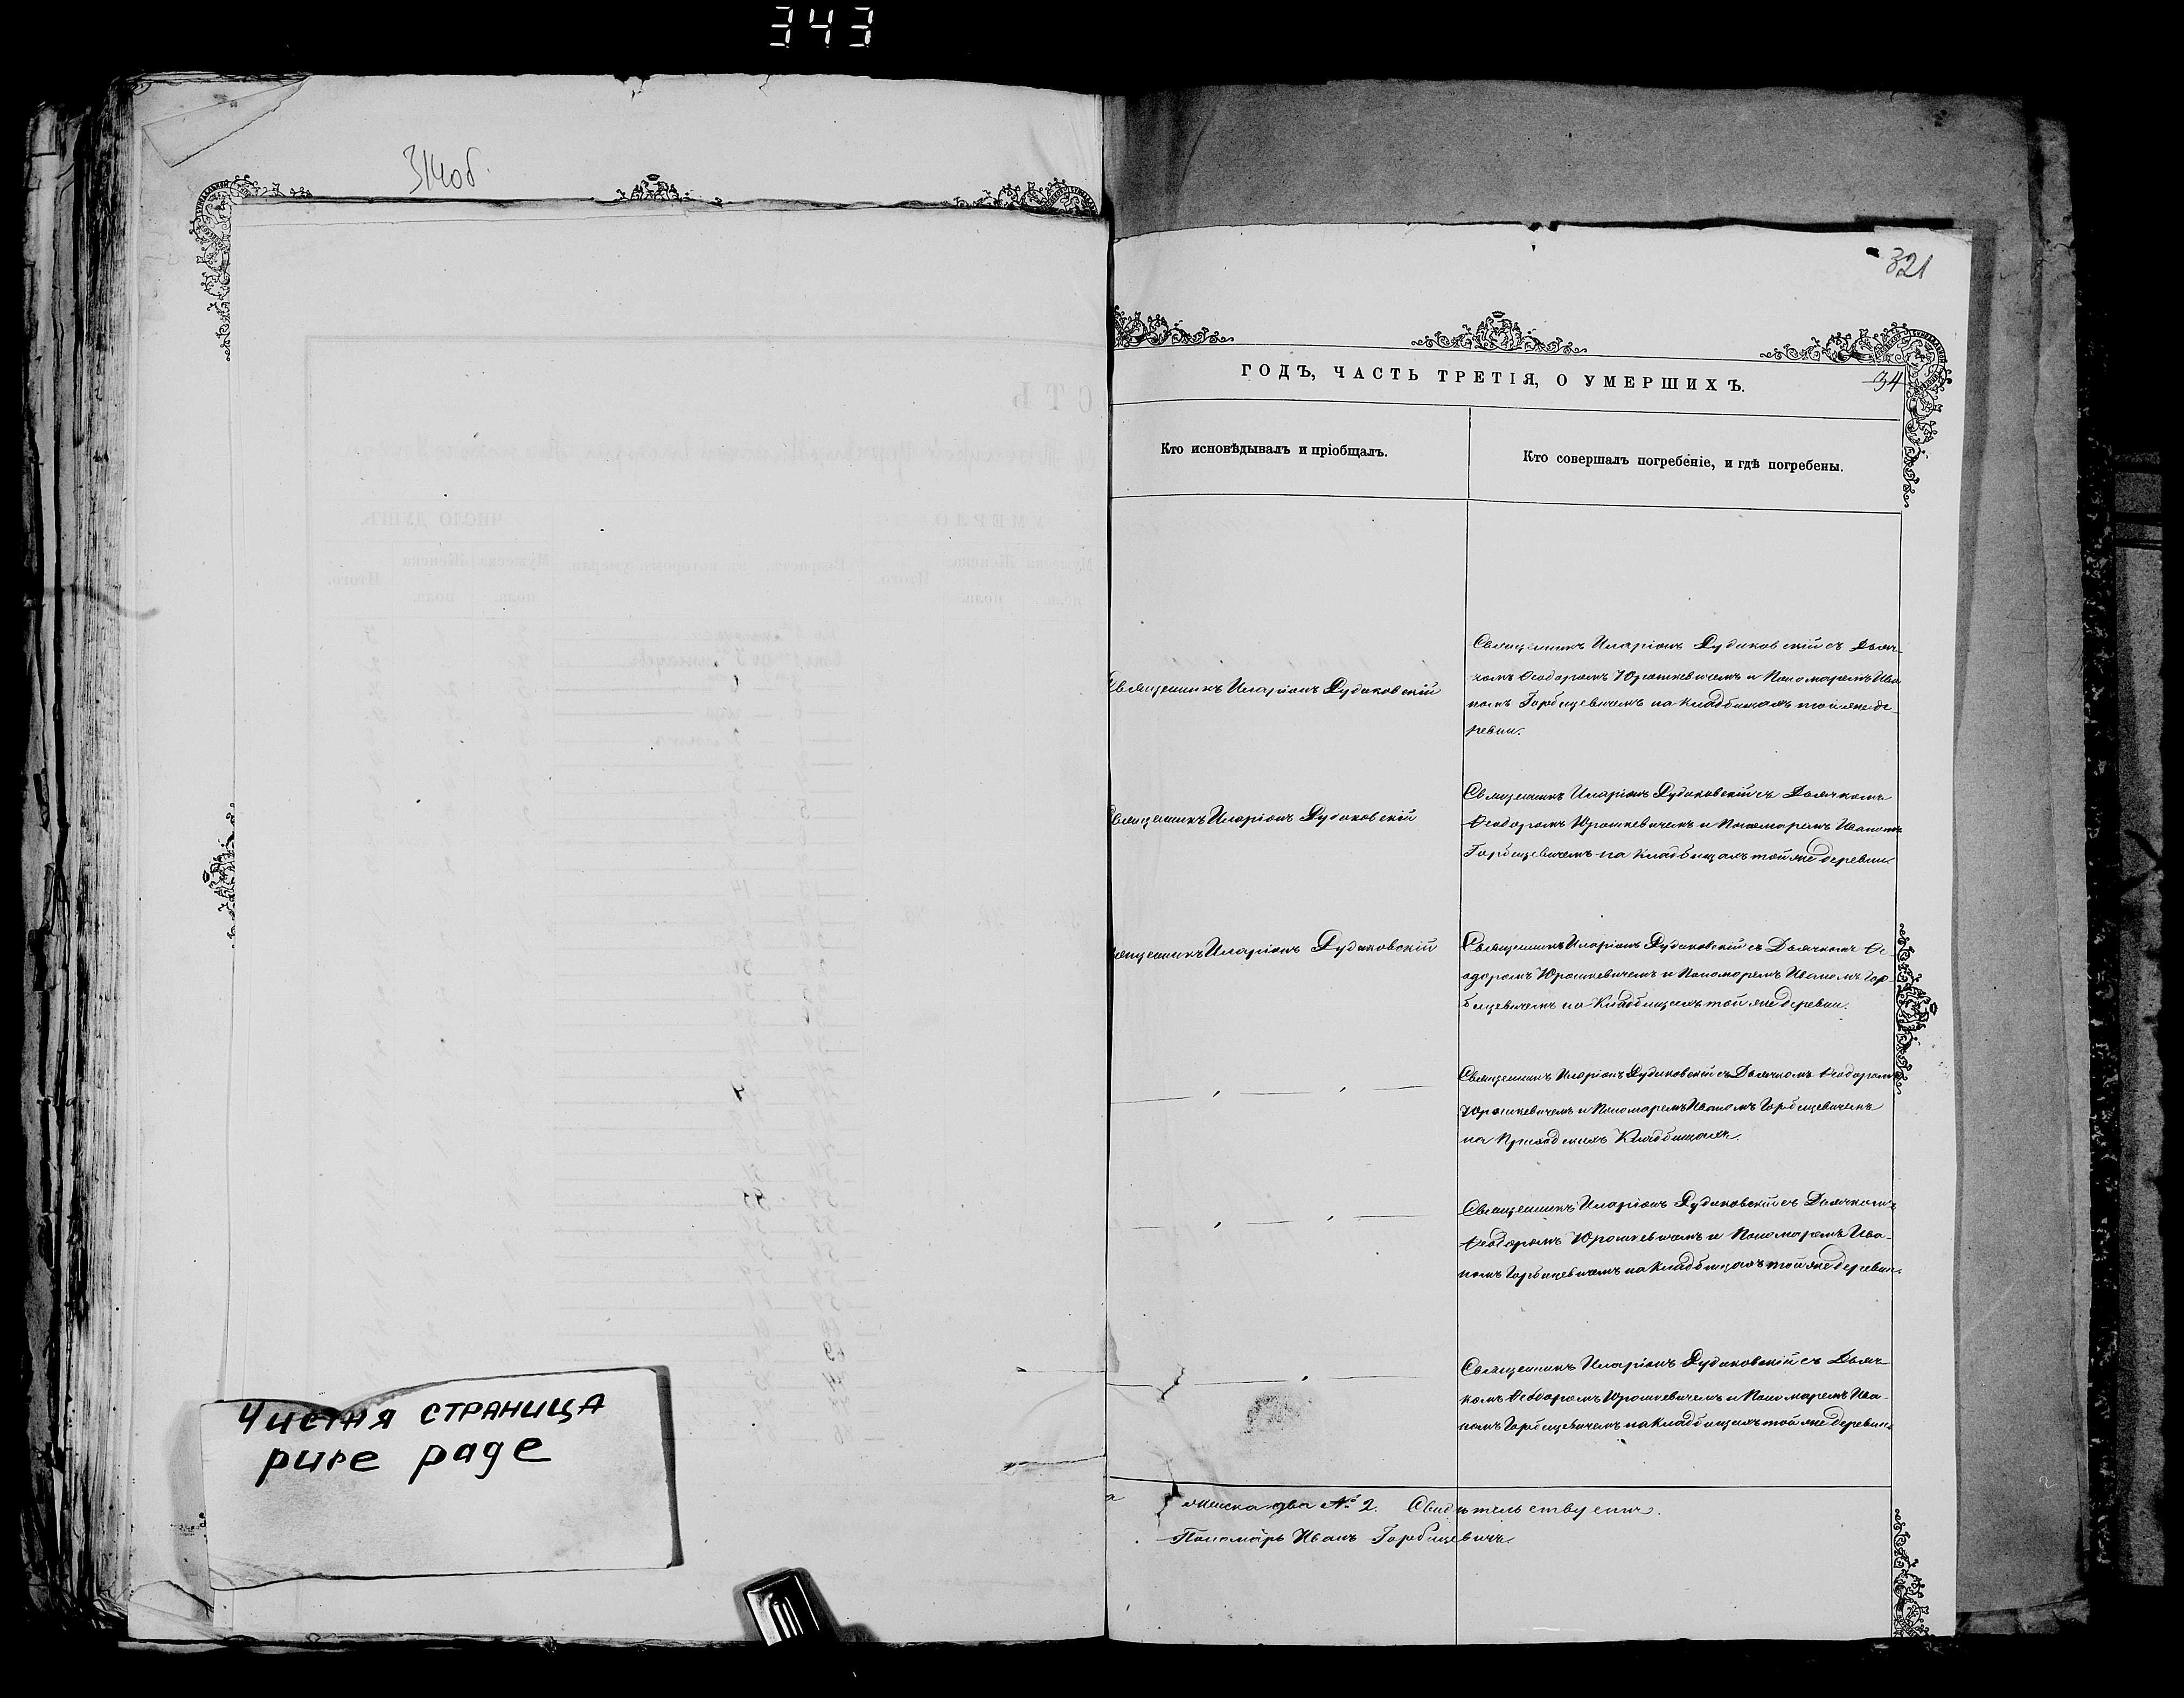 343
314об.
Чистая страница
pure page
321
ГОДЪ, ЧАСТЬ ТРЕТІЯ, О УМЕРШИХЪ.
34
Кто исповѣдывалъ и пріобщалъ.
Кто совершалъ погребеніе, и гдѣ погребены.
Священникъ Иларіонъ Дудаковскій
Священникъ Иларіонъ Дудаковскій съ Дьяч-
комъ Ѳеодоромъ Юрашкевичемъ и Пономаремъ Ива
номъ Горбацевичемъ на кладбищахъ той же де-
ревни.
Священникъ Иларіонъ Дудаковскій
Священникъ Иларіонъ Дудаковскій съ Дьячкомъ
Ѳеодоромъ Юрашкевичемъ и Пономаремъ Иваномъ
Горбацевичемъ на Кладбищахъ той же деревни.
Священникъ Иларіонъ Дудаковскій
Священникъ Иларіонъ Дудаковскій съ Дьячкомъ Ѳе-
одоромъ Юрашкевичемъ и Пономаремъ Иваномъ Гор-
бацевичемъ на Кладбищахъ той же деревни.
Священникъ Иларіонъ Дудаковскій съ Дьячкомъ Ѳеодоромъ
Юрашкевичемъ и Пономаремъ Иваномъ Горбацевичемъ
на Приходскихъ Кладбищахъ.
Священникъ Иларіонъ Дудаковскій съ Дьячкомъ
Ѳеодоромъ Юрашкевичемъ и Пономаремъ Ива-
номъ Горбацевичемъ на кладбищахъ той же деревни.
Священникъ Иларіонъ Дудаковскій съ Дьяч-
комъ Ѳеодоромъ Юрашкевичемъ и Пономаремъ Ива-
номъ Горбацевичемъ на кладбищахъ той же деревни.
женска два № 2. Свидѣтельствуетъ.
Пономарь Иванъ Горбацевичъ.